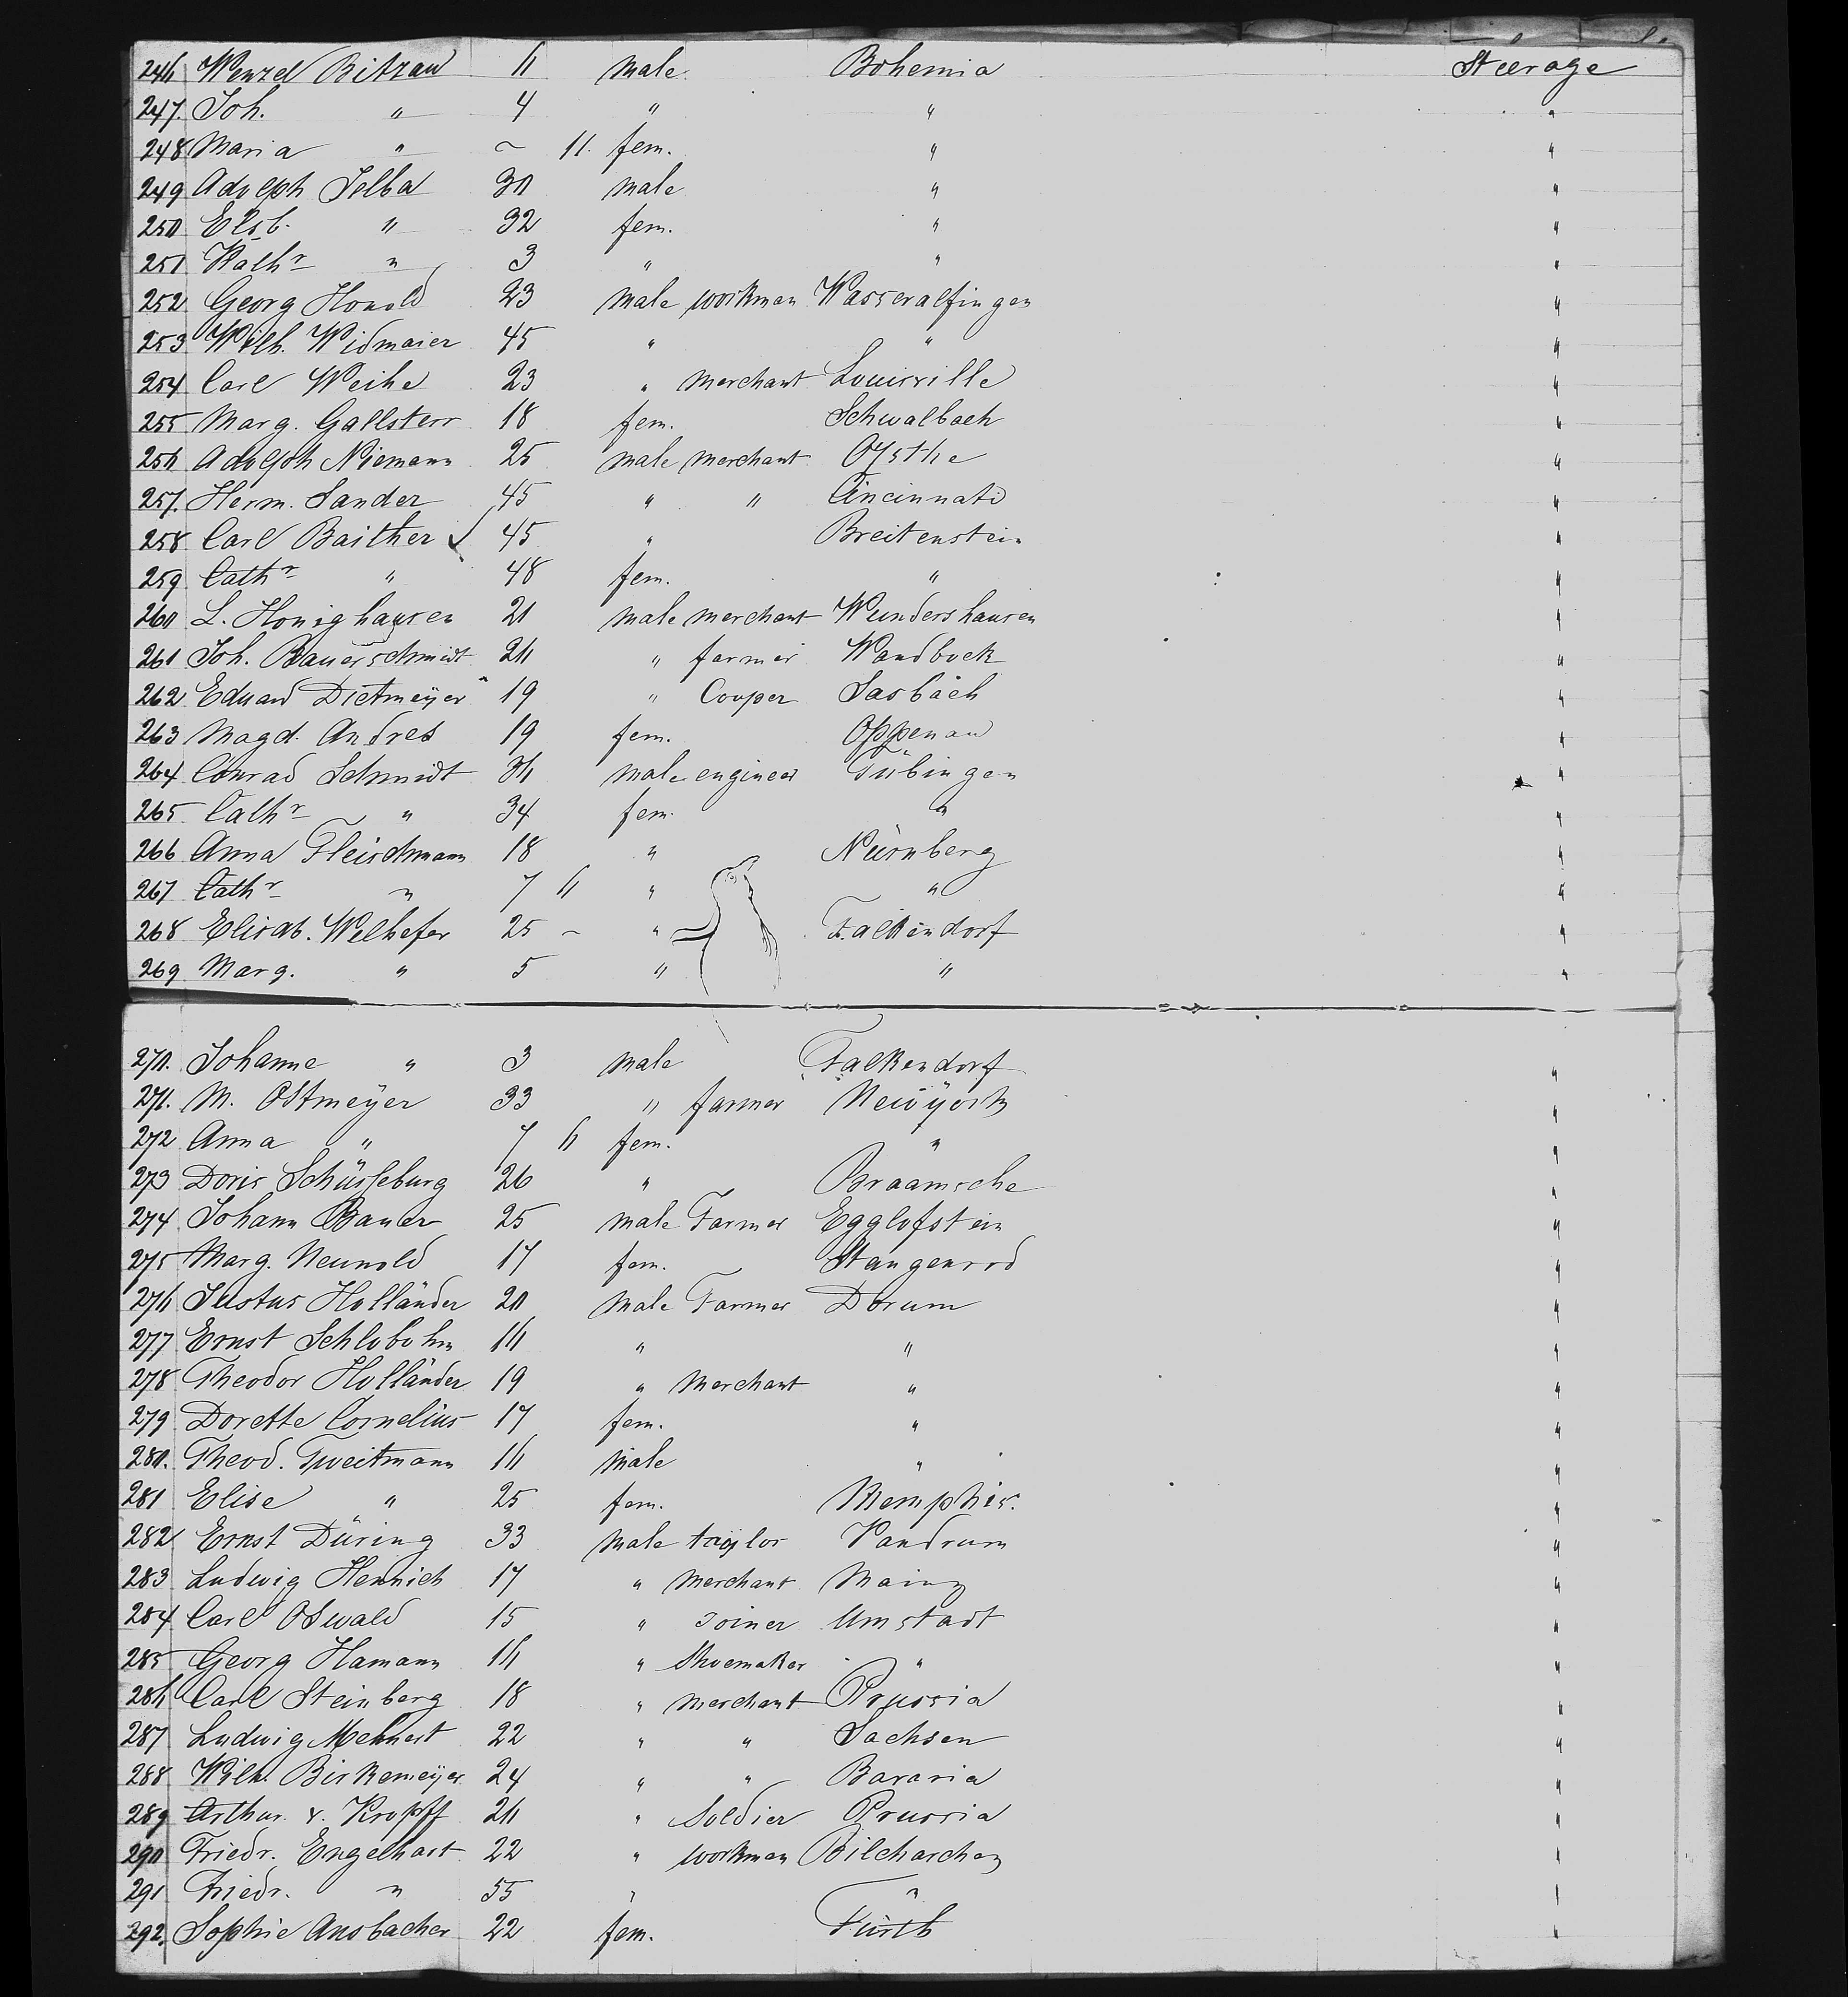 246 Wenzel Bitzan 6 male Bohemia Steerage
247. Joh. " 4 " " "
248 Maria " ~ 11. fem. " "
249 Adolph Selba 30 male " "
250 Elsb. " 32 fem. " "
251 Kathr " 3 " " "
252 Georg Honold 23 male workman Wasseralfingen "
253 Wilh. Widmaier 45 " " "
254 Carl Weihe 23 " merchant Louisville "
255 Marg. Gallsterr 18 fem. Schwalbach "
256 Adolph Niemann 25 male merchant Oysthe "
257. Herm. Sander 45 " " Cincinnati "
258 Carl Baither 45 " Breitenstein "
259 Cathr " 48 fem. " "
260 L. Honighausen 21 male merchant Wundershausen "
261 Joh. Bauerschmidt 26 " farmer Wandbock "
262 Eduard Dietmeÿer 19 " Cooper Sasbach "
263 Magd. Andres 19 fem. Oppenau "
264 Conrad Schmidt 36 male engineer Tübingen "
265 Cathr " 34 fem. " "
266 Anna Fleischmann 18 " Nürnberg "
267 Cathr " 7 6 " " "
268 Elisab. Welhefer 25 - " Falkendorf "
269 Marg. " 5 " " "
270. Johanne " 3 male Falkendorf "
271. M. Ostmeÿer 33 " farmer Newÿork "
272 Anna " 7 6 fem. " "
273 Doris Schüsseburg 26 " Braamsche "
274 Johann Bauer 25 male Farmer Egglofstein "
275 Marg. Neunold 17 fem. Stangenrod "
276 Justus Holländer 20 male Farmer Dorum "
277 Ernst Schlobohm 16 " " "
278 Theodor Holländer 19 " merchant " "
279 Dorette Cornelius 17 fem. " "
280. Theod. Tweitmann 16 male " "
281 Elise " 25 fem. Memphis. "
282 Ernst Düring 33 male taylor Vandrum "
283 Ludwig Hennich 17 " merchant Mainz "
284 Carl Oswald 15 " Joiner Umstadt "
285 Georg Hamann 16 " Shoemaker " "
286 Carl Steinberg 18 " merchant Prussia "
287 Ludwig Mehnert 22 " " Sachsen "
288 Wilh. Birkemeÿer 24 " " Bavaria "
289 Arthur v. Kropff 26 " Soldier Prussia "
290 Friedr. Engelhart 22 " workman "
291 Friedr. " 55 " "
292. Sophie Ansbacher 22 fem. Fürth "